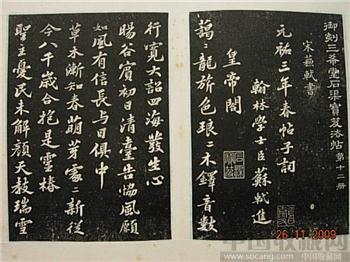 御刻三希堂石渠寶笈法帖第十二冊
宋蘇軾書
元祐三年春帖子詞
翰林學士臣蘇軾進
皇帝閣
藹〻龍旂色琅〻木鐸音數
行寬大詔四海發生心
暘谷賓初日清臺告協風願
如風有信長與日俱中
草木漸知春萌芽處〻新從
今八千歲合抱是靈椿
聖主憂民未解顏天教瑞雪
26.11.2009
中国收藏网
www.socang.com